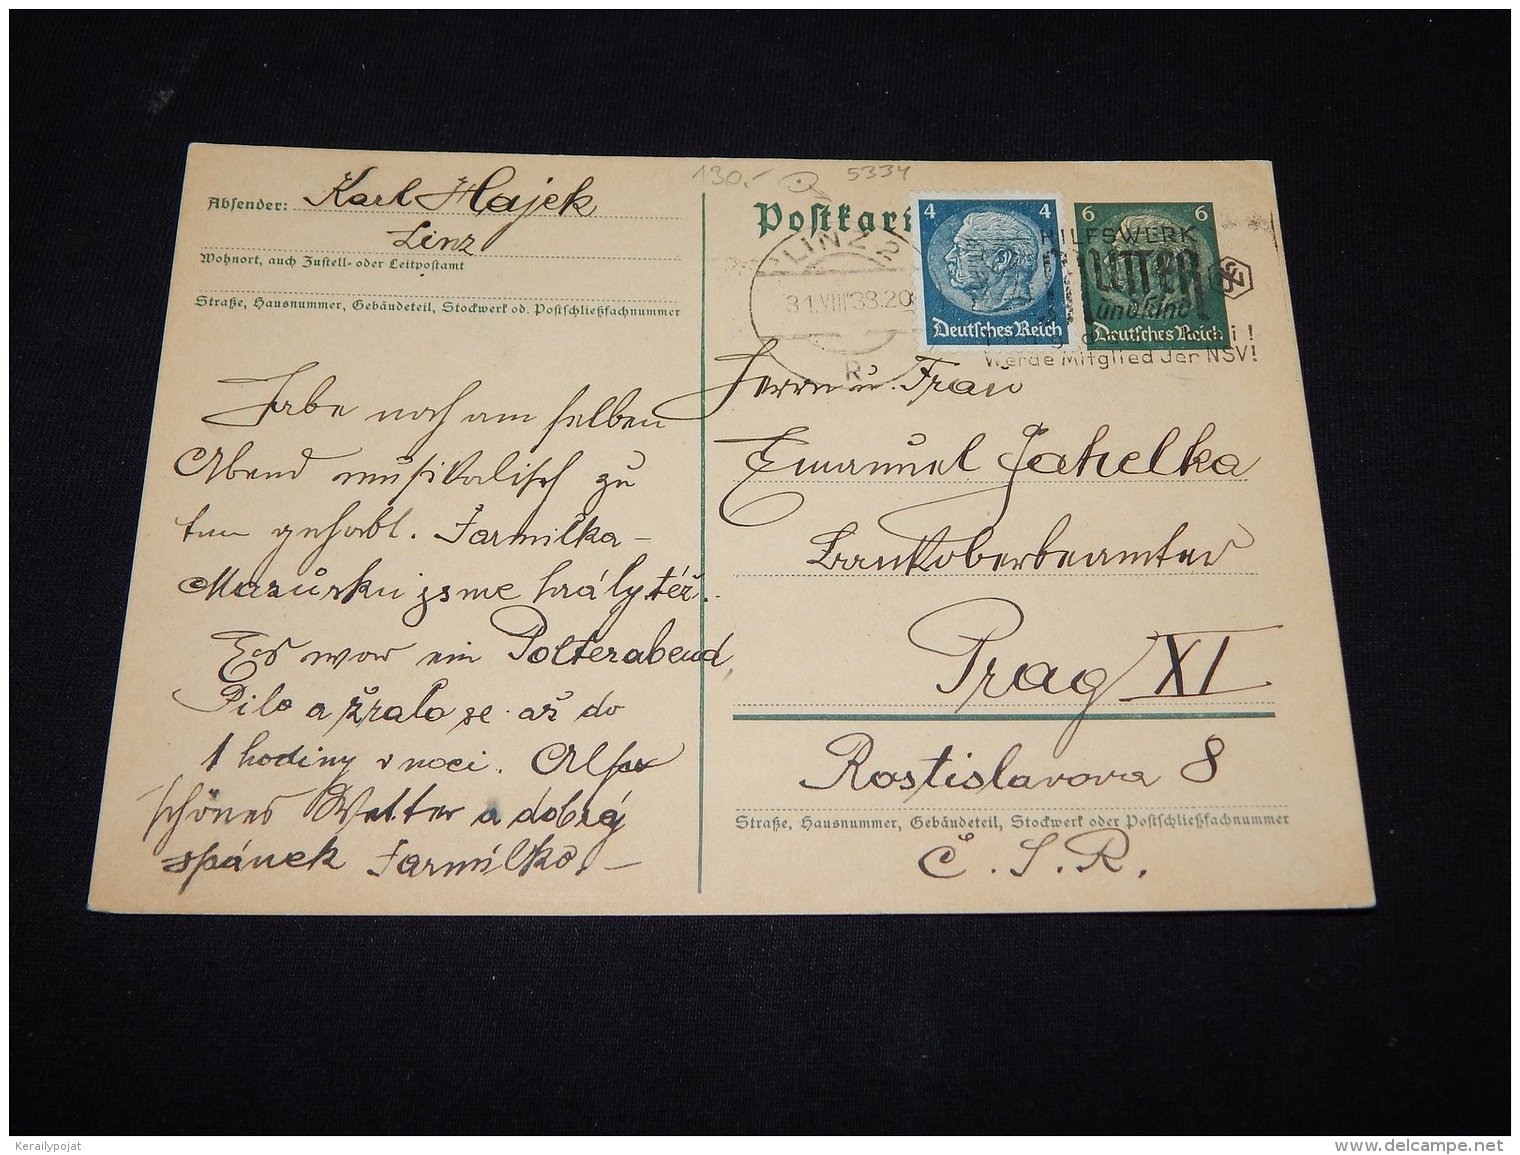 130.- 5334
Absender: Karl Hajek
Linz
Wohnort, auch Zustell- oder Leitpostamt
Straße, Hausnummer, Gebäudeteil, Stockwerk od. Postschließfachnummer
Habe noch am selben
Abend musikalisch zu
tun gehabt. Jarmilka-
Mazurku jsme hrály též.
Es war ein Polterabend,
Pilo a žralo se až do
1 hodiny v noci. Also
schönes Wetter a dobrý
spánek Jarmilko. –
Postkar
LINZ 2
31.VIII 38.20
R
4 4
Deutsches Reich
6 6
Deutsches Reich
HILFSWERK
MUTTER
und Kind
Werde Mitglied der NSV!
Herrn u. Frau
Emanuel
Bankoberbeamter
Prag XI
Rostislavova 8
Straße, Hausnummer, Gebäudeteil, Stockwerk oder Postschließfachnummer
Č.S.R.
Kerailypojat
delcampe.net